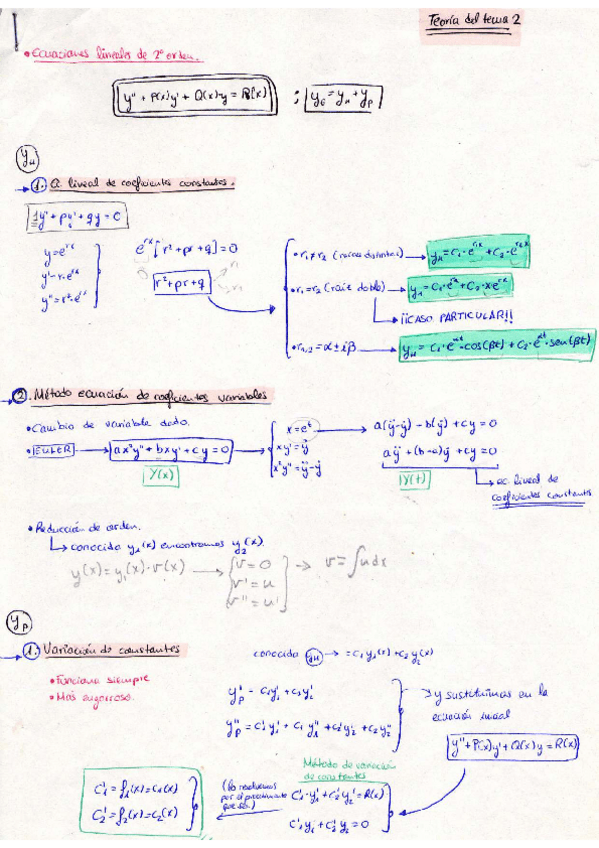 Teoría del tema 2
• Ecuaciones lineales de 2º orden.
y'' + P(x)y' + Q(x)·y = R(x) ; y_G = y_H + y_P
y_H
1. a lineal de coeficientes constantes.
1y'' + py' + qy = 0
y = e^{rx}
y' = r·e^{rx}
y'' = r²·e^{rx}
e^{rx} [r² + pr + q] = 0
r² + pr + q
• r₁ ≠ r₂ (raíces distintas) → y_H = C₁·e^{r₁x} + C₂·e^{r₂x}
• r₁ = r₂ (raíz doble) → y_H = C₁·e^{rx} + C₂·xe^{rx}
¡¡CASO PARTICULAR!!
• r₁,₂ = α ± iβ → y_H = C₁·e^{αt}·cos(βt) + C₂·e^{αt}·sen(βt)
2. Método ecuación de coeficientes variables
• Cambio de variable dado.
• EULER → ax²y'' + bxy' + cy = 0
Y(x)
x = e^t
xy' = ẏ
x²y'' = ÿ - ẏ
a(ÿ-ẏ) - b(ẏ) + cy = 0
aÿ + (b-a)ẏ + cy = 0
Y(t)
ec. lineal de
coeficientes constantes
• Reducción de orden.
conocida y₁(x) encontramos y₂(x).
y(x) = y₁(x)·v(x)
v = 0
v' = u
v'' = u'
v = ∫u dx
y_P
1. Variación de constantes
• Funciona siempre
• Más engorroso.
conocida y_H → = C₁y₁(x) + C₂y₂(x)
y'_P = C₁y₁' + C₂y₂'
y''_P = C₁'y₁' + C₁y₁'' + C₂'y₂' + C₂y₂''
y sustituimos en la
ecuación inicial
y'' + P(x)y' + Q(x)y = R(x)
Método de variación
de constantes
C₁'·y₁' + C₂'y₂' = R(x)
C₁'y₁ + C₂'y₂ = 0
(lo resolvemos
por el procedimiento
que sea.)
C₁' = f₁(x) = c₁(x)
C₂' = f₂(x) = c₂(x)